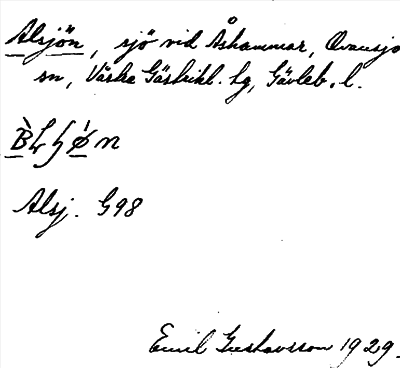 Alsjön, sjö vid Åshammar, Ovansjö
sn, Västra Gästrikl. hg, Gävleb. l.
Alsj. G98
Emil Gustavsson 1929.